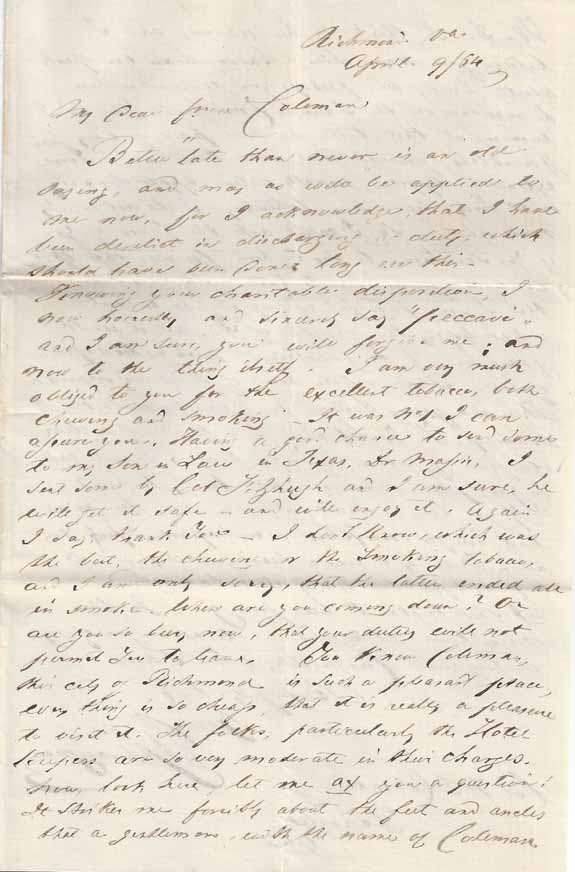 Richmond Va.
April 9/64
My Dear friend Coleman
"Better late than never" is an old
saying, and may as well be applied to
me now, for I acknowledge, that I have
been derelict in discharging a duty, which
should have been done long ere this -
Knowing your charitable disposition, I
now honestly and sincerely say "peccavi" -
and I am sure, you will forgive me; and
now to the thing itself. I am very much
obliged to you for the excellent tobacco, both
chewing and smoking - It was No 1 I can
assure you. Having a good chance to send some
to my Son in Law in Texas, Dr I
sent some by Col Fitzhugh and I am sure, he
will get it safe - and will enjoy it. Again
I say, thank You - I dont Know, which was
the best, the chewing or the Smoking tobacco,
and I am only sorry, that the latter ended all
in smoke. When are you coming down? Or
are you so busy now, that your duties will not
permit You to leave. You Know Coleman,
this city of Richmond is such a pleasant place,
every thing is so cheap that it is really a pleasure
to visit it. The folks, particularly the Hotel
Keepers are so very moderate in their charges.
Now, look here, let me ax you a question!
It strikes me forcibly about the feet and ancles
that a gentleman, with the name of Coleman